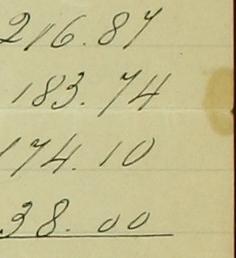 216.87
183.74
174.10
38.00